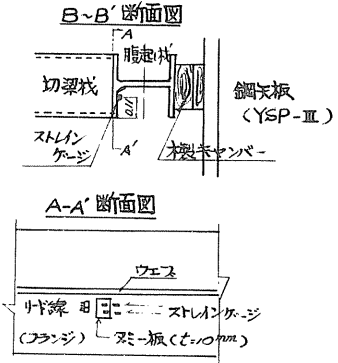 B~B′断面図
A
腹起し材
切梁材
鋼矢板
(YSP-Ⅲ)
ストレイン
ゲージ
A′
木製キャンバー
A-A′断面図
ウェブ
リード線
ストレインゲージ
(フランジ)
ダミー板(t=10mm)